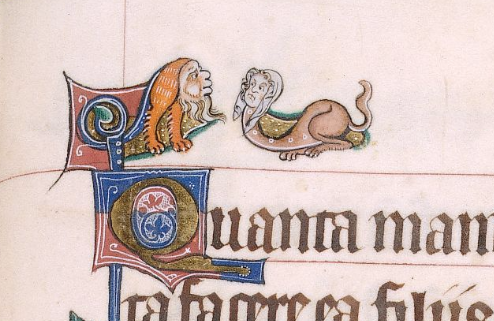 Quanta mam
ta facere ea filiis